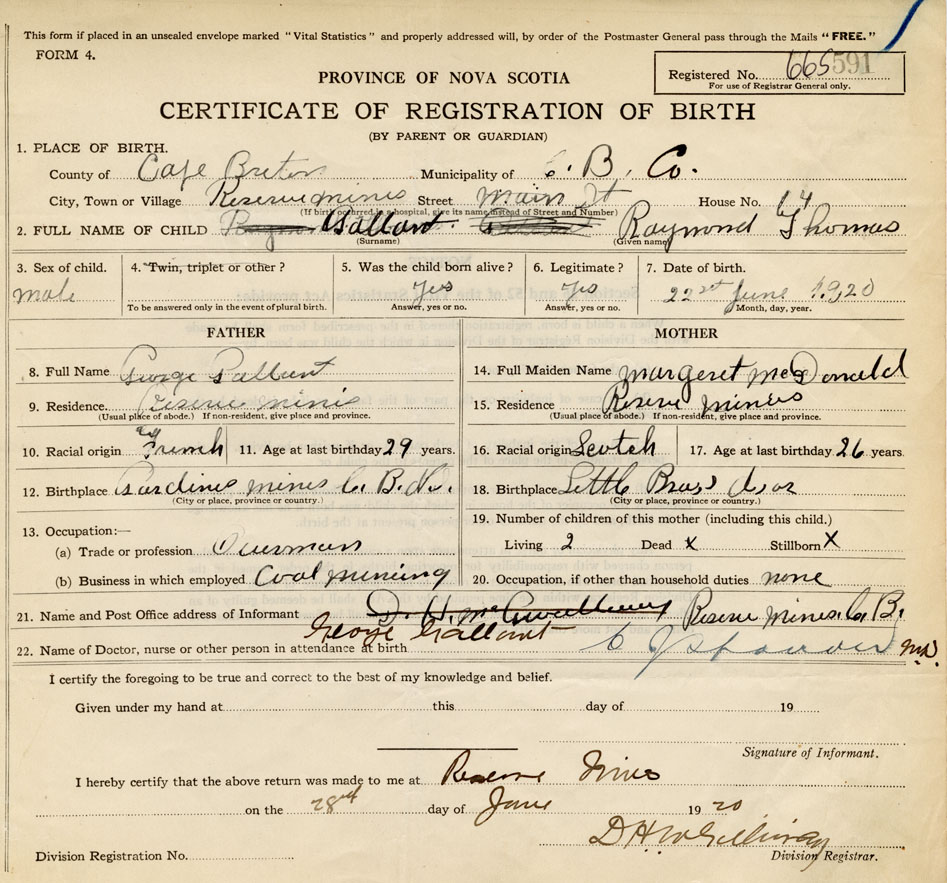 This form if placed in an unsealed envelope marked "Vital Statistics" and properly addressed will, by order of the Postmaster General pass through the Mails "FREE."
FORM 4.
PROVINCE OF NOVA SCOTIA
Registered No. 665 591
For use of Registrar General only.
CERTIFICATE OF REGISTRATION OF BIRTH
(BY PARENT OR GUARDIAN)
1. PLACE OF BIRTH.
County of Cape Breton Municipality of C. B. Co.
City, Town or Village Reserve mines Street Main St House No. 64
(If birth occurred in a hospital, give its name instead of Street and Number)
2. FULL NAME OF CHILD Gallant. Raymond Thomas
(Surname) (Given name)
3. Sex of child. 4. Twin, triplet or other? 5. Was the child born alive? 6. Legitimate? 7. Date of birth.
male Yes Yes 22nd June 1920
To be answered only in the event of plural birth. Answer, yes or no. Answer, yes or no. Month, day, year.
FATHER MOTHER
8. Full Name George Gallant 14. Full Maiden Name Margaret McDonald
9. Residence. Reserve mines 15. Residence Reserve mines
(Usual place of abode.) If non-resident, give place and province. (Usual place of abode.) If non-resident, give place and province.
10. Racial origin French 11. Age at last birthday 29 years. 16. Racial origin Scotch 17. Age at last birthday 26 years.
12. Birthplace Gardiner mines C. B. 18. Birthplace Little Bras d'or
(City or place, province or country.) (City or place, province or country.)
13. Occupation:— 19. Number of children of this mother (including this child.)
(a) Trade or profession Overman Living 2 Dead X Stillborn X
(b) Business in which employed Coal mining 20. Occupation, if other than household duties none
21. Name and Post Office address of Informant Reserve Mines C. B.
George Gallant
22. Name of Doctor, nurse or other person in attendance at birth M.D.
I certify the foregoing to be true and correct to the best of my knowledge and belief.
Given under my hand at this day of 19
Signature of Informant.
I hereby certify that the above return was made to me at Reserve Mines
on the 28th day of June 1920
D H McGillivray
Division Registration No. Division Registrar.